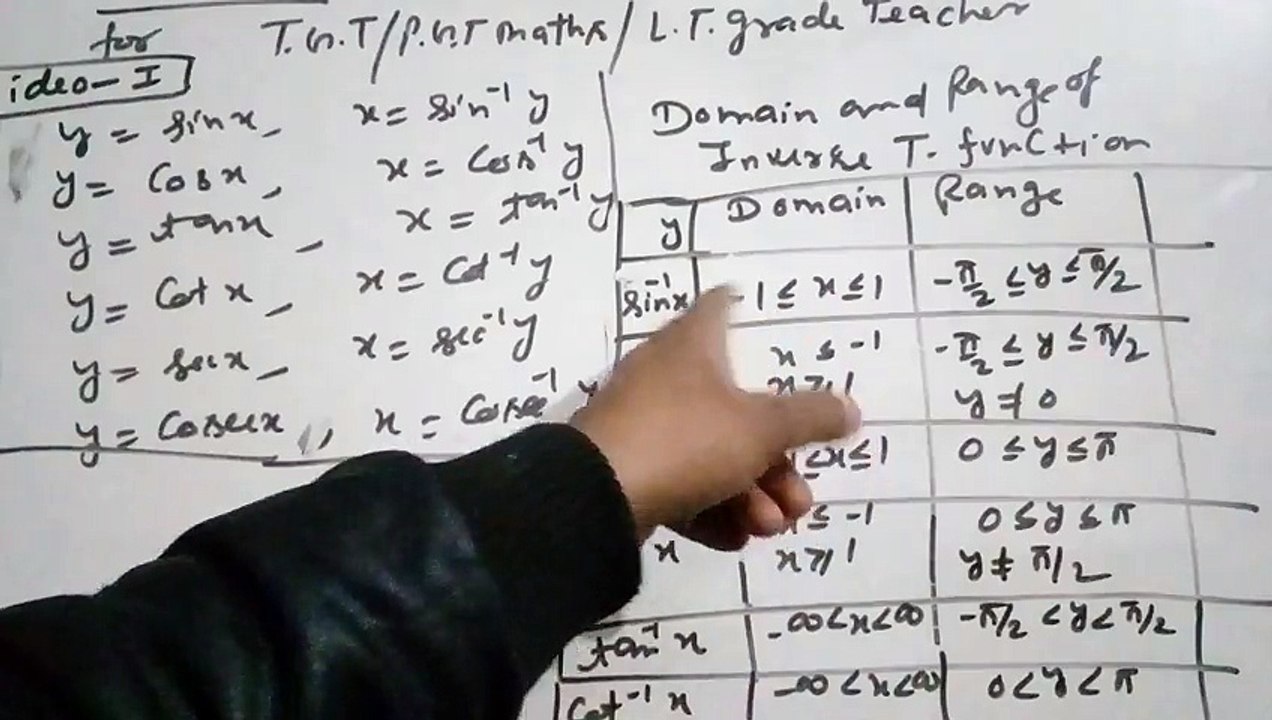 for T.G.T/P.G.T maths/L.T. grade Teacher
ideo-I
y = sinx, x = sin⁻¹ y
y = Cosx, x = Cos⁻¹ y
y = tanx, x = tan⁻¹ y
y = Cot x, x = Cot⁻¹ y
y = secx, x = sec⁻¹ y
y = Cosecx, x = Cosec⁻¹ y
Domain and Range of
Inverse T. function
y Domain Range
sin⁻¹x -1 ≤ x ≤ 1 -π/2 ≤ y ≤ π/2
x ≤ -1 -π/2 ≤ y ≤ π/2
x ≥ 1 y ≠ 0
≤ x ≤ 1 0 ≤ y ≤ π
x ≤ -1 0 ≤ y ≤ π
x x ≥ 1 y ≠ π/2
tan⁻¹ x -∞ < x < ∞ -π/2 < y < π/2
Cot⁻¹ x -∞ < x < ∞ 0 < y < π